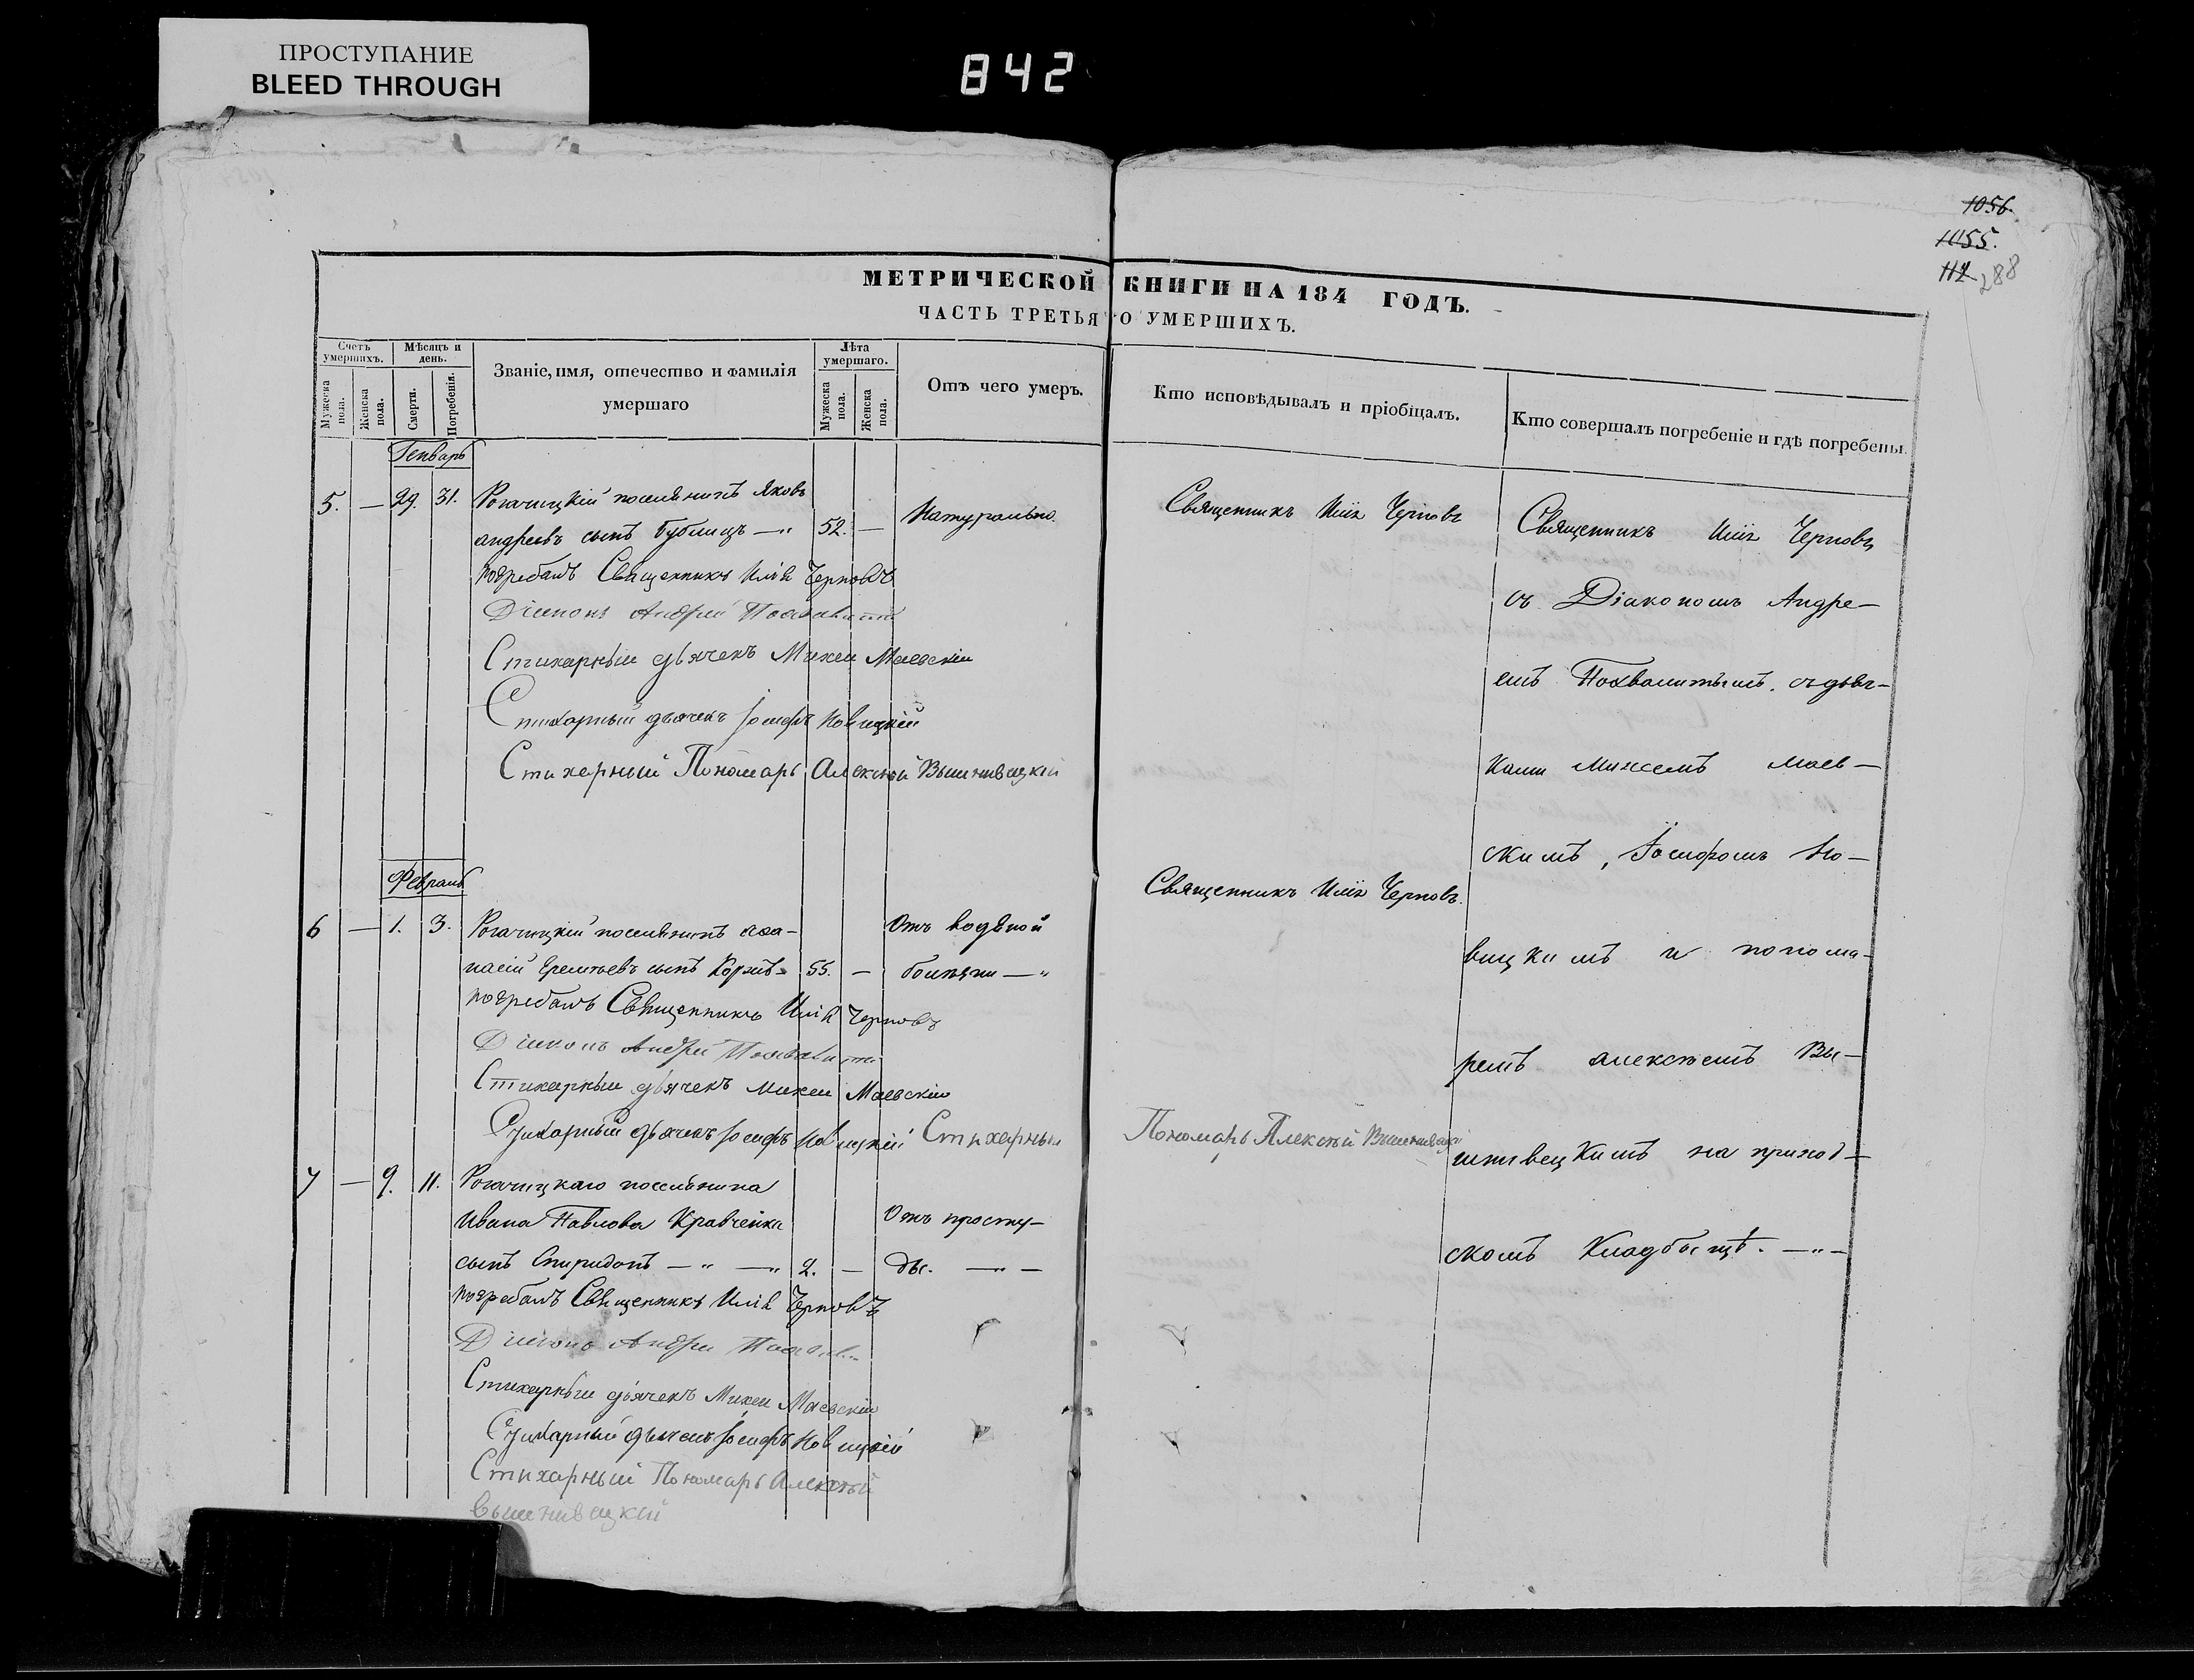 ПРОСТУПАНИЕ
BLEED THROUGH
842
1056.
1055.
112 288
МЕТРИЧЕСКОЙ КНИГИ НА 184 ГОДЪ.
ЧАСТЬ ТРЕТЬЯ О УМЕРШИХЪ.
Счетъ умершихъ.
Мужеска пола.
Женска пола.
Мѣсяцъ и день.
Смерти.
Погребенія.
Званіе, имя, отечество и фамилія
умершаго
Лѣта умершаго.
Мужеска пола.
Женска пола.
Отъ чего умеръ.
Кто исповѣдывалъ и пріобщалъ.
Кто совершалъ погребеніе и гдѣ погребены.
Генварь
5. — 29. 31. Рогачицкій поселянинъ Яковъ
андреевъ сынъ Бублицъ —" 52. — Натурально.
погребалъ Священникъ Илія Черновъ
Діаконъ Андрей Похвалитый
Стихарный дьячекъ Михей Маевскій
Стихарный дьячекъ Іосифъ Новицкій
Стихарный Пономарь Алексѣй Вышнивецкій
Февраль
6 — 1. 3. Рогачицкій поселянинъ Афа-
насій сынъ 55. — Отъ водяной
болѣзни —"
погребалъ Священникъ Илія Черновъ
Діаконъ Андрей
Стихарный дьячекъ Михей Маевскій
Стихарный дьячекъ Іосифъ Новицкій Стихарный
Пономарь Алексѣй Вышнивецкій
7 — 9. 11. Рогачицкаго поселянина
Ивана Павлова Кравченка Отъ просту-
сынъ Спиридонъ — " —" 2. — ды. —"—
погребалъ Священникъ Илія Черновъ
Діаконъ Андрей
Стихарный дьячекъ Михей Маевскій
Стихарный дьячекъ Іосифъ Новицкій
Стихарный Пономарь Алексѣй
Вышнивецкій
Священникъ Илія Черновъ
Священникъ Илія Черновъ.
Священникъ Илія Черновъ
съ Діакономъ Андре-
емъ Похвалитымъ. съ дьяч-
ками Михеемъ Маев-
скимъ, Іосифомъ Но-
вицкимъ и понома-
ремъ алексѣемъ Вы-
шнивецкимъ на приход-
скомъ Кладбищѣ. —"—